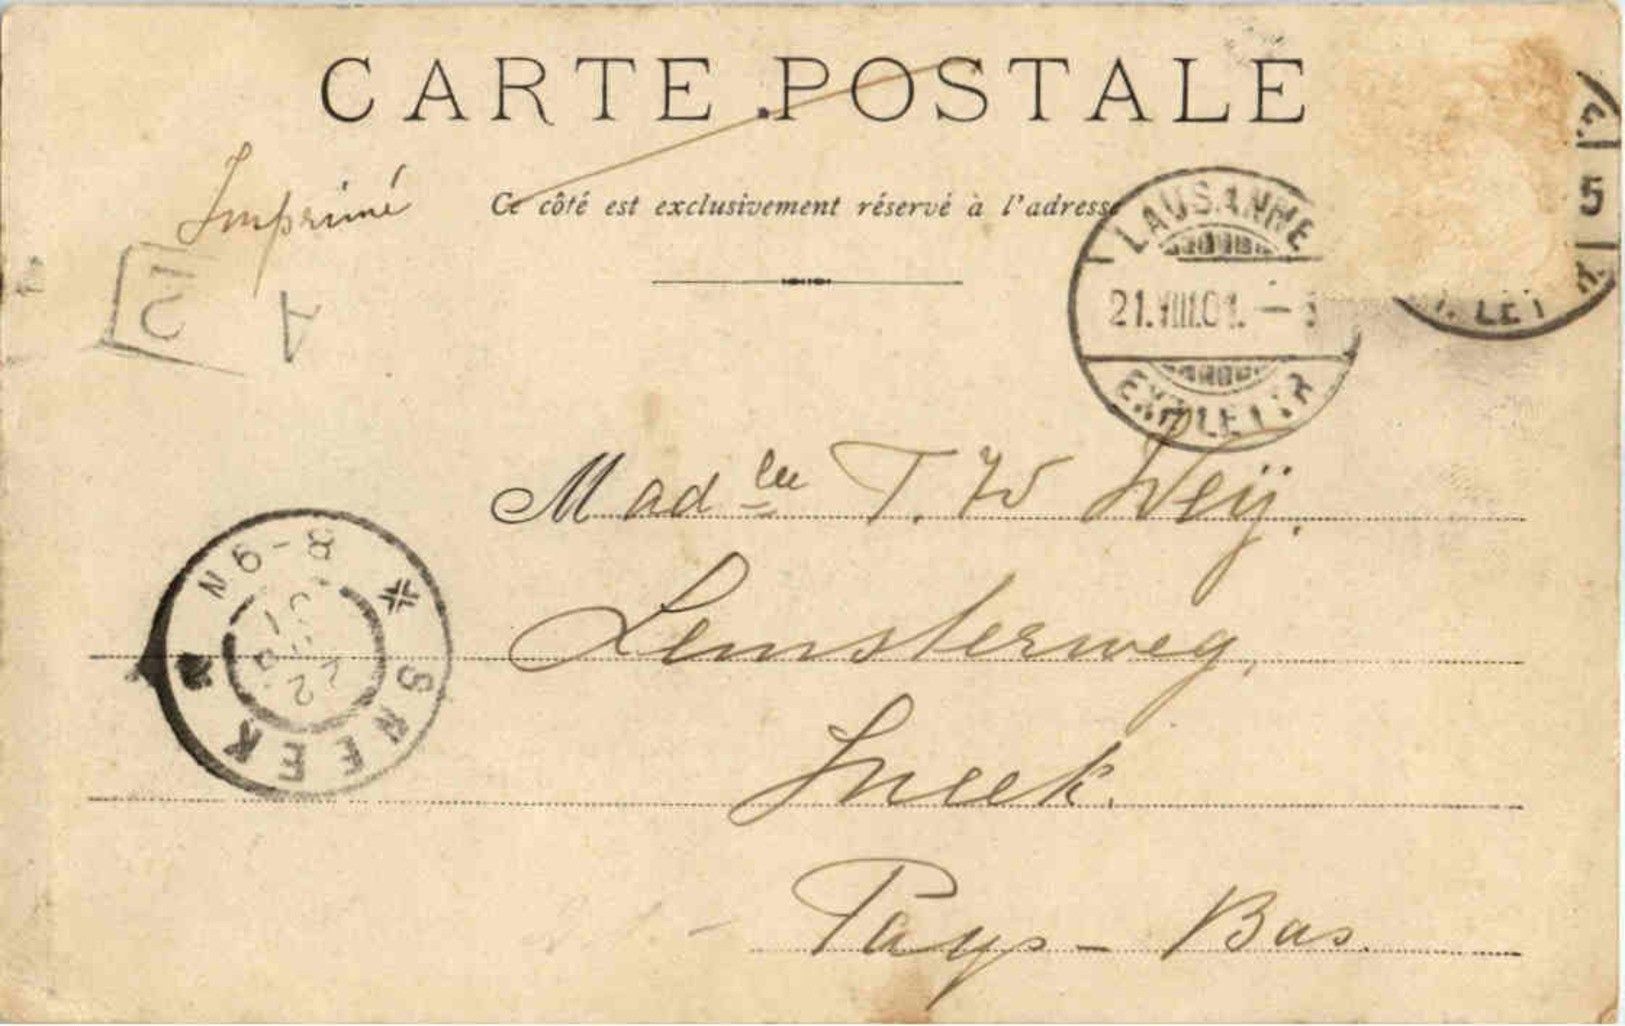 CARTE POSTALE
Imprimé
Ce côté est exclusivement réservé à l'adresse
LAUSANNE
21.VIII.01. –
EXP. LETTR.
5
LET
A
Mad lle T. W Weij.
Lemsterweg,
Sneek.
Pays-Bas.
SNEEK
8-9N
22